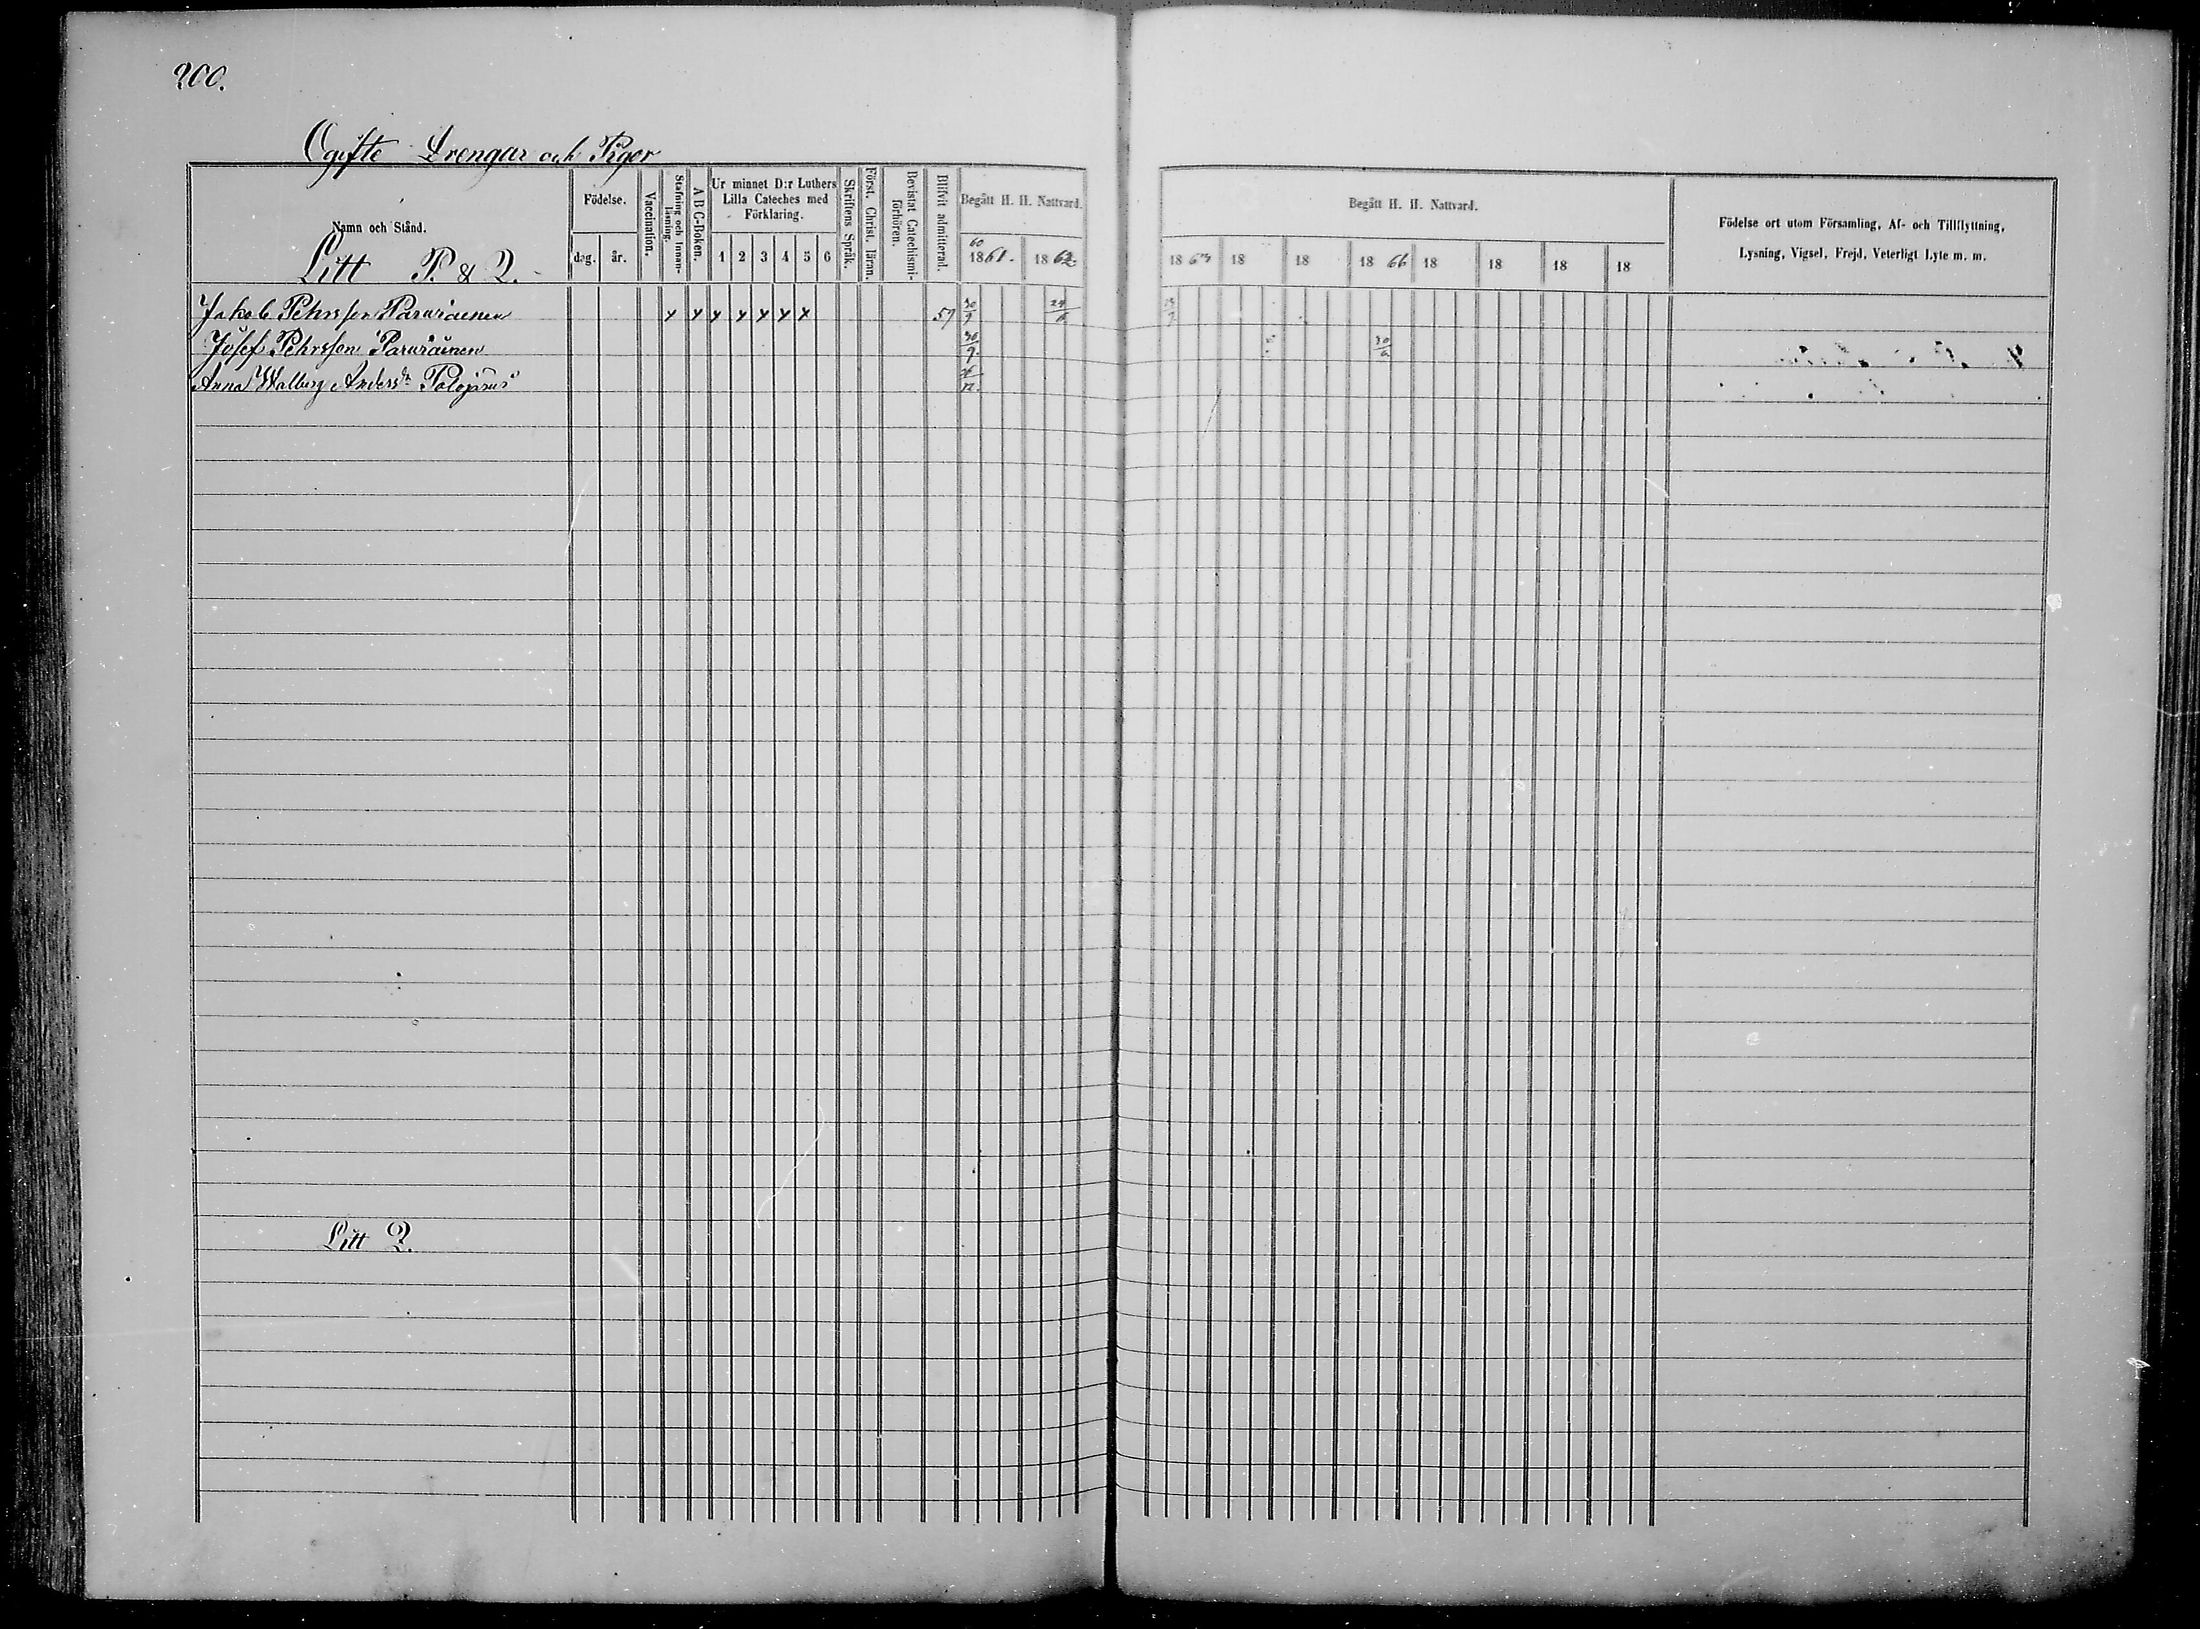 200.
Ogifte Drengar och Pigor
Namn och Stånd.
Litt P. & Q.
Födelse.
dag. år.
Vaccination.
Stafning och Innan-
läsning.
A B C-Boken.
Ur minnet D:r Luthers
Lilla Cateches med
Förklaring.
1 2 3 4 5 6
Skriftens Språk.
Först. Christ. läran.
Bevistat Catechismi-
förhören.
Blifvit admitterad.
Begått H. H. Nattvard.
60
1861. 1862.
Begått H. H. Nattvard.
1863 18 18 1866 18 18 18 18
Födelse ort utom Församling, Af- och Tillflyttning,
Lysning, Vigsel, Frejd, Veterligt Lyte m. m.
Jakob Pehrsson Pararainen x x x x x x x 57 30/9 24/6
Josef Pehrsson Pararainen 30/9. 30/6
Anna Walborg Andersdr Palojärvi
Litt Q.